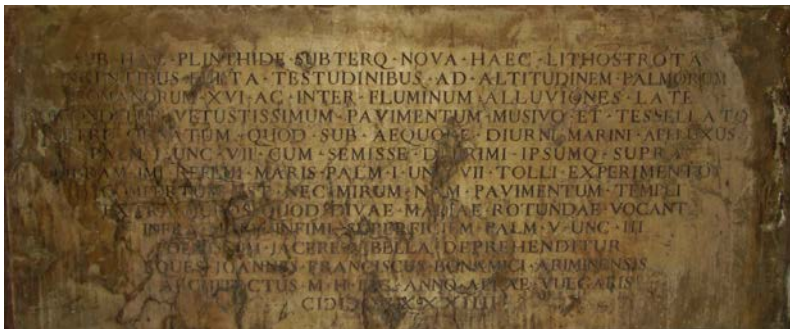 SUB · HAC · PLINTHIDE · SUBTERQ · NOVA · HAEC · LITHOSTROTA
TESTUDINIBUS · AD · ALTITUDINEM · PALMORUM
XVI · AC · INTER · FLUMINUM · ALLUVIONES · LATE
VETUSTISSIMUM · PAVIMENTUM · MUSIVO · ET · TESSELLATO
QUOD · SUB · AEQUORE · DIURNI · MARINI · AFFLUXUS
PALM · I · UNC · VII · CUM · SEMISSE · DEPRIMI · IPSUMQ · SUPRA
MARIS · PALM · I · UNC · VII · TOLLI · EXPERIMENTO
COMPERTUM · EST · NEC · MIRUM · NAM · PAVIMENTUM · TEMPLI
QUOD · DIVAE · MARIAE · ROTUNDAE · VOCANT
INFIMI · SUPERFICIEM · PALM · V · UNC · III
JACERE · LIBELLA · DEPREHENDITUR
EQUES · JOANNES · FRANCISCUS · BONAMICI · ARIMINENSIS
ANNO · VULGARIS